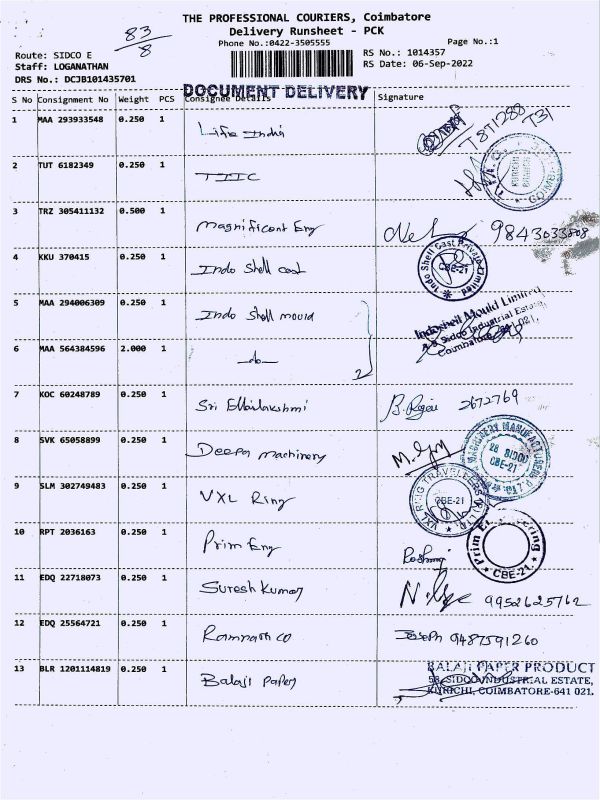 THE PROFESSIONAL COURIERS, Coimbatore
Delivery Runsheet - PCK
83/8
Phone No.:0422-3505555
Page No.:1
Route: SIDCO E
RS No.: 1014357
Staff: LOGANATHAN
RS Date: 06-Sep-2022
DRS No.: DCJB101435701
DOCUMENT DELIVERY
S No Consignment No Weight PCS Consignee Details Signature
1 MAA 293933548 0.250 1 India T8T1288 T31
2 TUT 6182349 0.250 1 TIIC
3 TRZ 305411132 0.500 1 Magnificant Eng 9843033808
4 KKU 370415 0.250 1 Indo Shell Cast
Indo Shell Cast Private Limited CBE-21
5 MAA 294006309 0.250 1 Indo Shell mould
Indoshell Mould Limited,
Sidco Industrial Estate,
Coimbatore 021.
6 MAA 564384596 2.000 1 -do- 2
7 KOC 60248789 0.250 1 Sri 2672769
8 SVK 65058899 0.250 1 Deepa machinery
MACHINERY MANUFACTURERS 28 SIDCO CBE-21
9 SLM 302749483 0.250 1 VXL Ring
VXL RING TRAVELLERS (P) LTD. CBE-21
10 RPT 2036163 0.250 1 Prim Eng
Prim Engineering CBE-21.
11 EDQ 22718073 0.250 1 Suresh Kumar 9952625762
12 EDQ 25564721 0.250 1 Ramnath co Joseph 9487591260
13 BLR 1201114819 0.250 1 Balaji paper
BALAJI PAPER PRODUCT
58, SIDCO INDUSTRIAL ESTATE,
KURICHI, COIMBATORE-641 021.